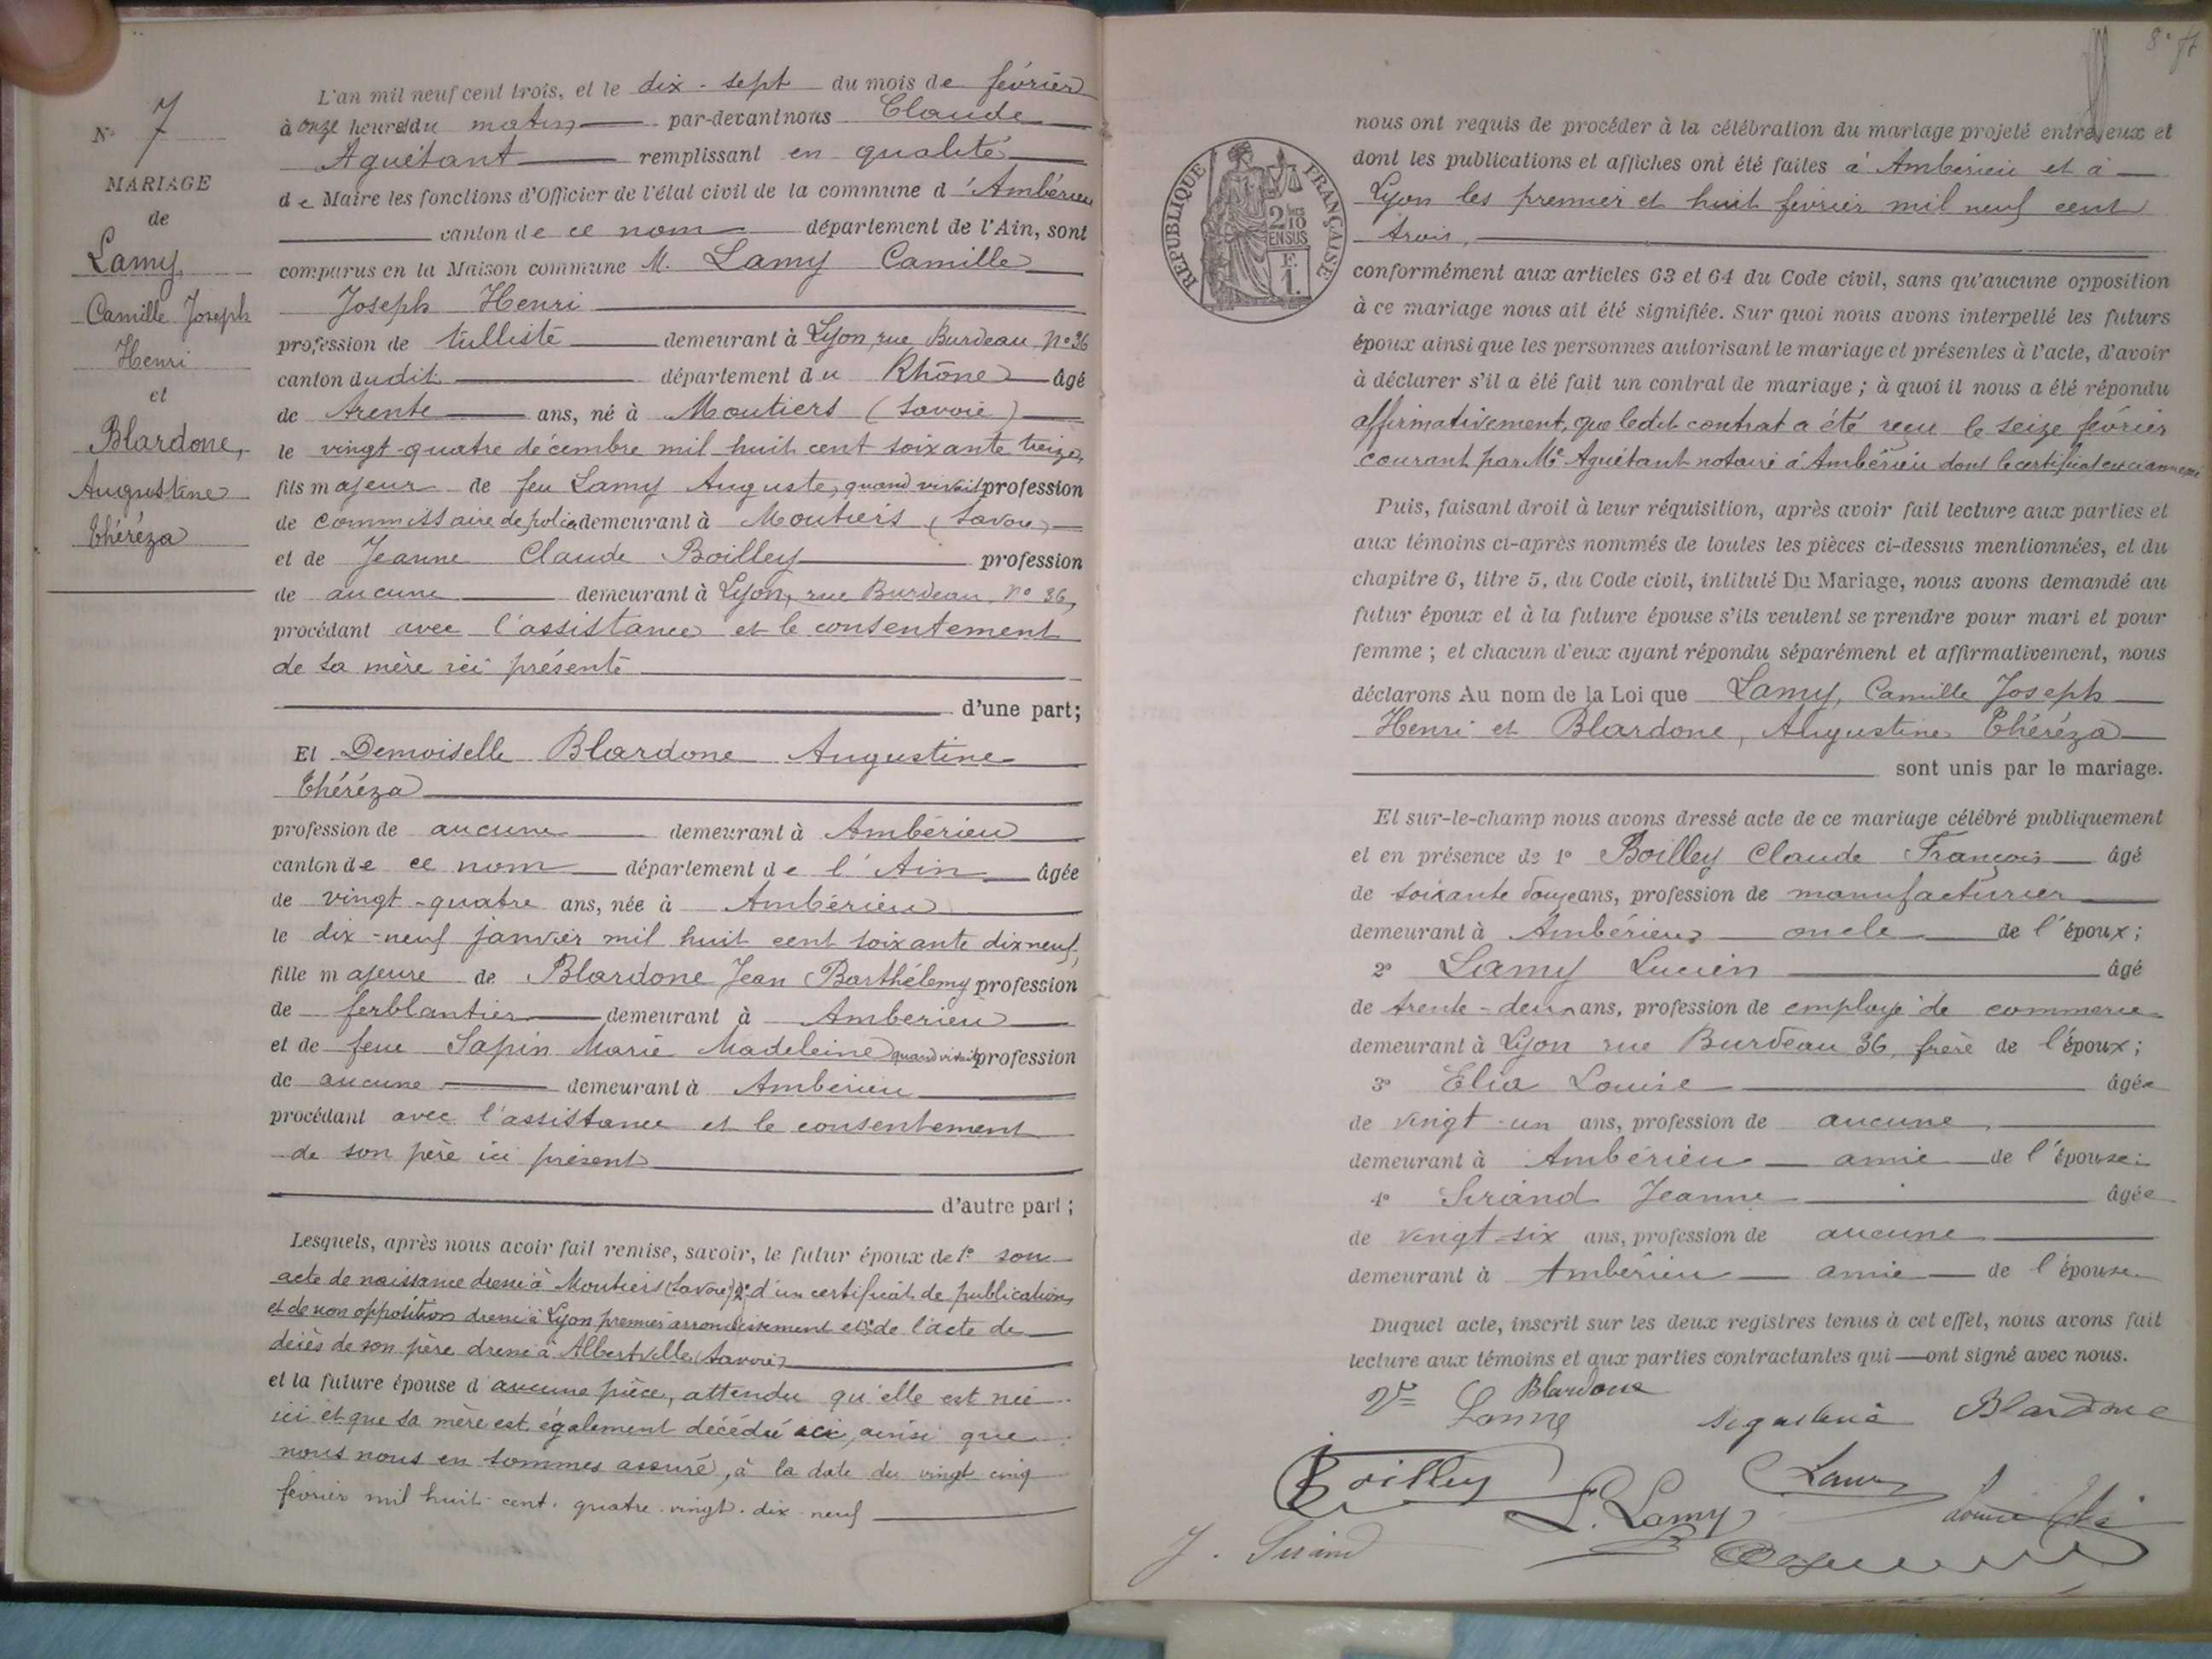 N° 7
MARIAGE
de
Lamy,
Camille Joseph
Henri
et
Blardone,
Augustine
Théréza
L'an mil neuf cent trois, et le dix-sept du mois de février
à onze heures du matin par-devant nous Claude
Aguétant remplissant en qualité
de Maire les fonctions d'Officier de l'état civil de la commune d'Ambérieu
canton de ce nom département de l'Ain, sont
comparus en la Maison commune M. Lamy Camille
Joseph Henri
profession de tulliste demeurant à Lyon, rue Burdeau N° 36
canton dudit département du Rhône âgé
de trente ans, né à Moutiers (Savoie)
le vingt-quatre décembre mil huit cent soixante treize,
fils majeur de feu Lamy Auguste, quand vivait profession
de commissaire de police demeurant à Moutiers (Savoie)
et de Jeanne Claude Boilley profession
de aucune demeurant à Lyon, rue Burdeau N° 36,
procédant avec l'assistance et le consentement
de sa mère ici présente
d'une part;
Et Demoiselle Blardone Augustine
Théréza
profession de aucune demeurant à Ambérieu
canton de ce nom département de l'Ain âgée
de vingt-quatre ans, née à Ambérieu
le dix-neuf janvier mil huit cent soixante dix neuf,
fille majeure de Blardone Jean Barthélemy profession
de ferblantier demeurant à Ambérieu
et de feue Sapin Marie Madeleine quand vivait profession
de aucune demeurant à Ambérieu
procédant avec l'assistance et le consentement
de son père ici présent
d'autre part;
Lesquels, après nous avoir fait remise, savoir, le futur époux de 1° son
acte de naissance dressé à Moutiers (Savoie) 2° d'un certificat de publication
et de non opposition dressé à Lyon premier arrondissement et 3° de l'acte de
décès de son père dressé à Albertville (Savoie)
et la future épouse d'aucune pièce, attendu qu'elle est née
ici et que sa mère est également décédée ici, ainsi que
nous nous en sommes assuré, à la date du vingt cinq
février mil huit cent quatre-vingt-dix-neuf
8e ft
RÉPUBLIQUE FRANÇAISE
2/10 EN SUS
F. 1.
nous ont requis de procéder à la célébration du mariage projeté entre eux et
dont les publications et affiches ont été faites à Ambérieu et à
Lyon les premier et huit février mil neuf cent
trois,
conformément aux articles 63 et 64 du Code civil, sans qu'aucune opposition
à ce mariage nous ait été signifiée. Sur quoi nous avons interpellé les futurs
époux ainsi que les personnes autorisant le mariage et présentes à l'acte, d'avoir
à déclarer s'il a été fait un contrat de mariage; à quoi il nous a été répondu
affirmativement, que ledit contrat a été reçu le seize février
courant par Me Aguétant notaire à Ambérieu dont le certificat est ci annexé
Puis, faisant droit à leur réquisition, après avoir fait lecture aux parties et
aux témoins ci-après nommés de toutes les pièces ci-dessus mentionnées, et du
chapitre 6, titre 5, du Code civil, intitulé Du Mariage, nous avons demandé au
futur époux et à la future épouse s'ils veulent se prendre pour mari et pour
femme; et chacun d'eux ayant répondu séparément et affirmativement, nous
déclarons Au nom de la Loi que Lamy, Camille Joseph
Henri et Blardone, Augustine Théréza
sont unis par le mariage.
Et sur-le-champ nous avons dressé acte de ce mariage célébré publiquement
et en présence de 1° Boilley Claude François âgé
de soixante douze ans, profession de manufacturier
demeurant à Ambérieu oncle de l'époux;
2° Lamy Lucien âgé
de trente-deux ans, profession de employé de commerce
demeurant à Lyon rue Burdeau 36, frère de l'époux;
3° Elia Louise âgée
de vingt-un ans, profession de aucune
demeurant à Ambérieu amie de l'épouse;
4° Sirand Jeanne âgée
de vingt-six ans, profession de aucune
demeurant à Ambérieu amie de l'épouse
Duquel acte, inscrit sur les deux registres tenus à cet effet, nous avons fait
lecture aux témoins et aux parties contractantes qui ont signé avec nous.
Ve Lamy Blardone Augustine Blardone
Boilley L. Lamy Lamy Louise Elia
J. Sirand